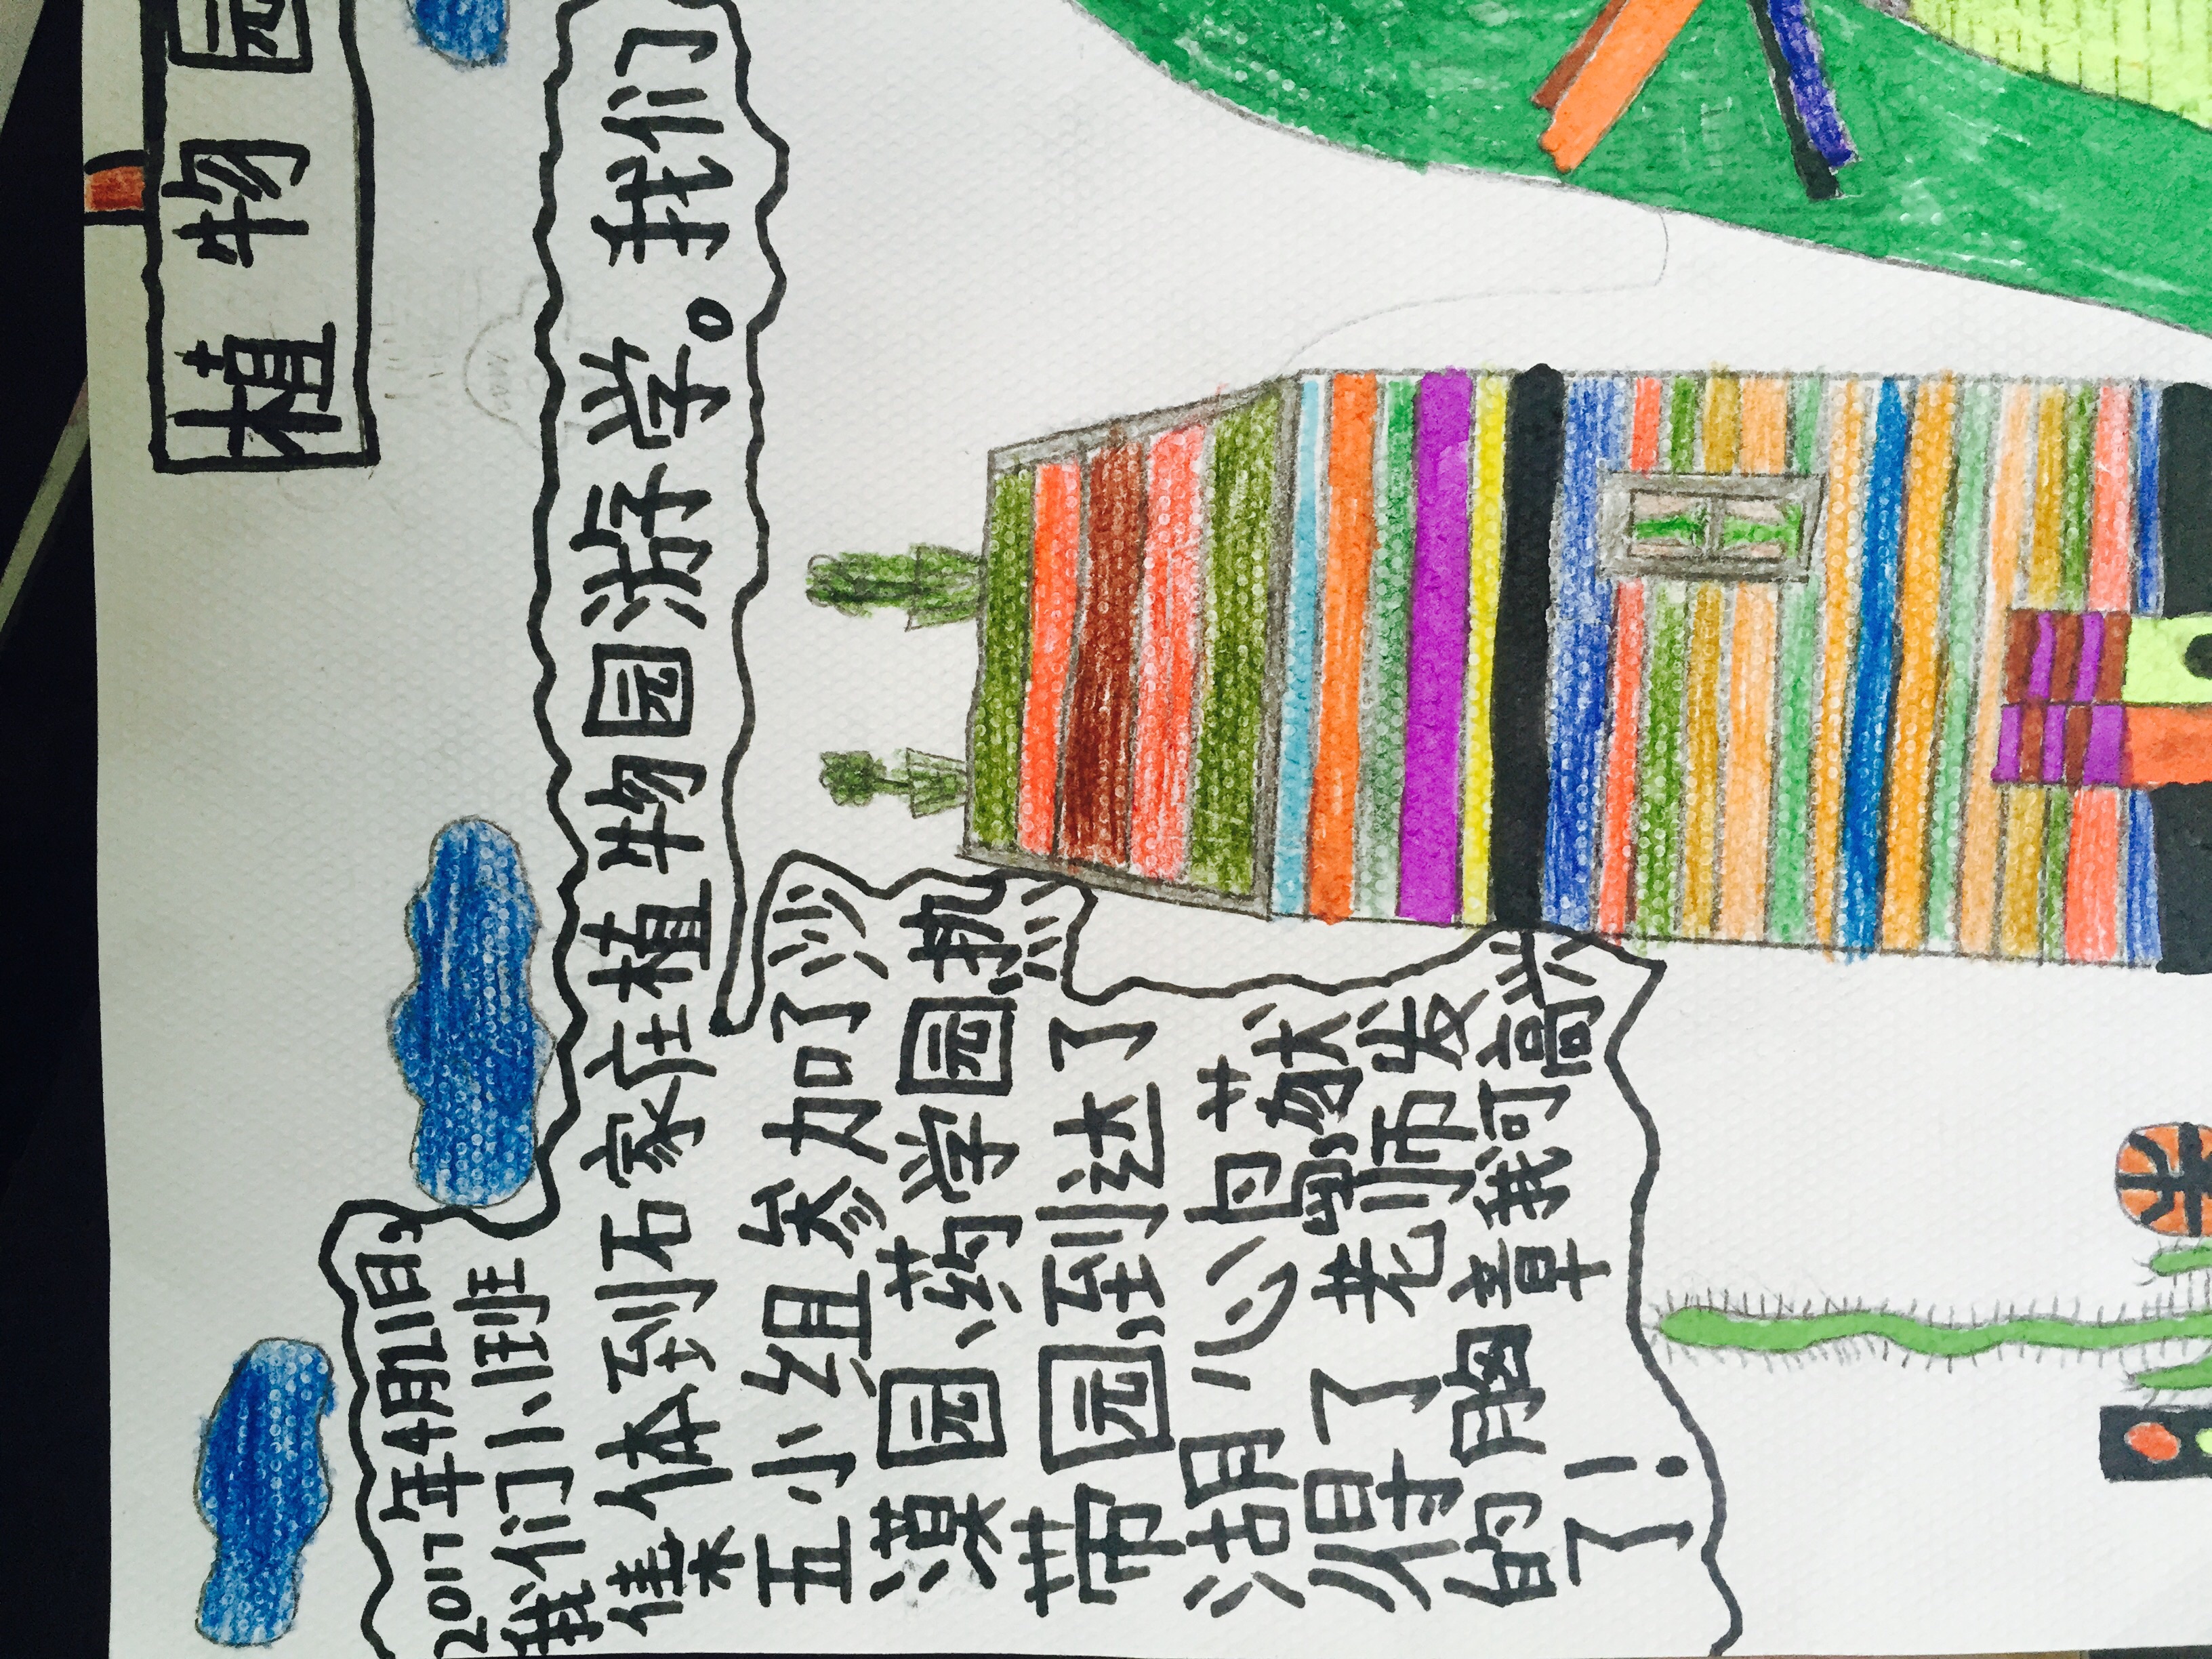 植物园
2017年4月21日,
我们小班
集体到石家庄植物园游学。我们
五小组参加了沙
漠园、药学园、热
带园、到达了
湖心岛获
得了老师发
的脑章我可高兴
了!